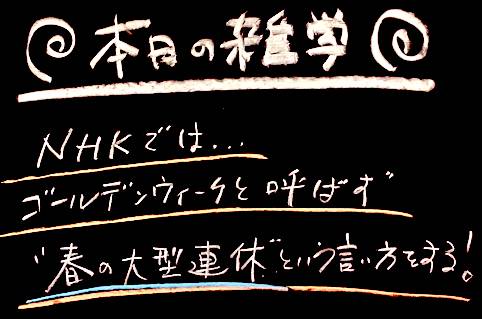 本日の雑学
NHKでは...
ゴールデンウィークと呼ばず
"春の大型連休"という言い方をする!